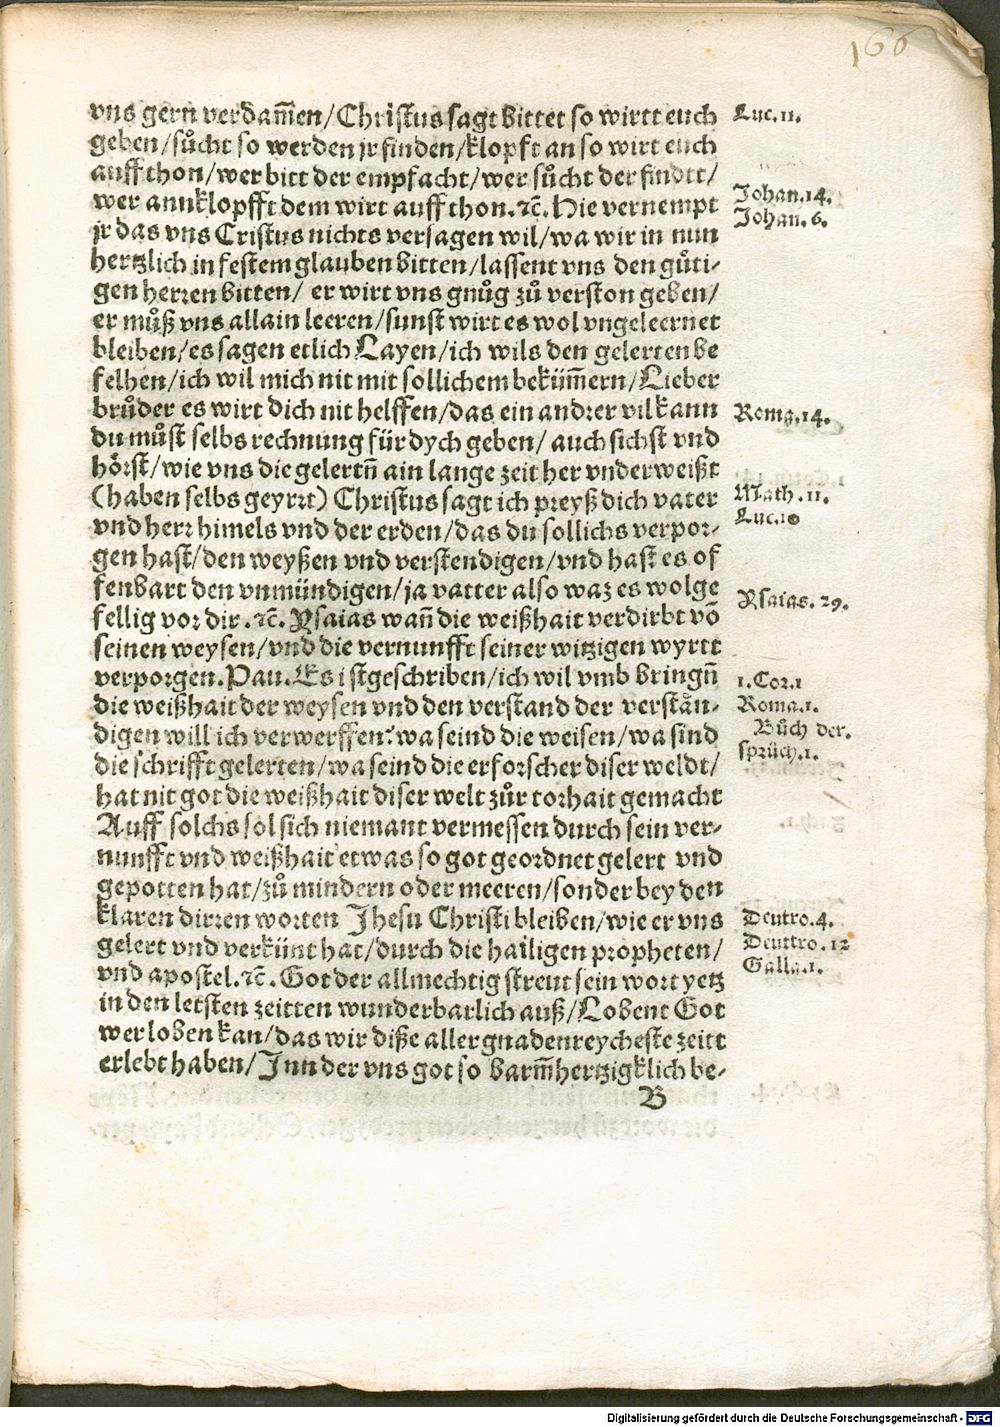 166
vns gern verdam̃en/Christus sagt bittet so wirtt euch
geben/sůcht so werden jr finden/klopft an so wirt euch
auff thon/wer bitt der empfacht/wer sůcht der findtt/
wer annklopfft dem wirt auff thon.ꝛc̃. Hie vernempt
jr das vns Cristus nichts versagen wil/wa wir in nun
hertzlich in festem glauben bitten/lassent vns den gůti-
gen herren bitten/ er wirt vns gnůg zů verston geben/
er můß vns allain leeren/sunst wirt es wol vngeleernet
bleiben/es sagen etlich Layen/ich wils den gelerten be
felhen/ich wil mich nit mit sollichem beküm̃ern/Lieber
brůder es wirt dich nit helffen/das ein andrer vil kann
du můst selbs rechnung für dych geben/ auch sichst vnd
hörst/wie vns die gelertñ ain lange zeit her vnderweißt
(haben selbs geyrrt) Christus sagt ich preyß dich vater
vnd herr himels vnd der erden/das du sollichs verpor-
gen hast/den weyßen vnd verstendigen/vnd hast es of
fenbart den vnmündigen/ja vatter also waz es wolge
fellig vor dir.ꝛc̃. Ysaias wañ die weißhait verdirbt võ
seinen weysen/vnd die vernunfft seiner witzigen wyrtt
verporgen.Pau.Es ist geschriben/ich wil vmb bringñ
die weißhait der weysen vnd den verstand der verstån-
digen will ich verwerffen:wa seind die weisen/wa sind
die schrifft gelerten/wa seind die erforscher diser weldt/
hat nit got die weißhait diser welt zůr torhait gemacht
Auff solchs sol sich niemant vermessen durch sein ver-
nunfft vnd weißhait etwas so got geordnet gelert vnd
gepotten hat/zů mindern oder meeren/sonder bey den
klaren dirren worten Jhesu Christi bleiben/wie er vns
gelert vnd verkünt hat/durch die hailigen propheten/
vnd apostel.ꝛc̃. Got der allmechtig streut sein wort yetz
in den letsten zeitten wunderbarlich auß/Lobent Got
wer loben kan/das wir diße aller gnadenreycheste zeitt
erlebt haben/Inn der vns got so barm̃hertzigklich be-
B
Luc.11.
Johan.14.
Johan.6.
Roma.14.
Math.11.
Luc.10
Ysaias.29.
1.Cor.1
Roma.1.
Bůch der.
sprüch.1.
Deutro.4.
Deuttro.12
Galla.1.
Digitalisierung gefördert durch die Deutsche Forschungsgemeinschaft - DFG